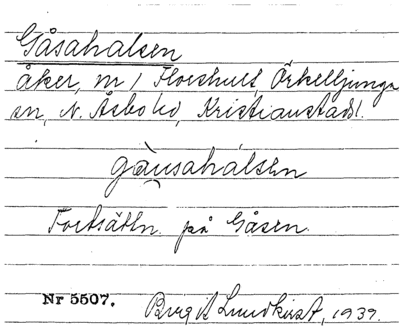 Gåsahalsen
åker, nr 1 Floeshult, Örkelljunga
sn, N. Åsbo hd, Kristianstad l.
gåusahálsen
Fortsättn. på Gåsen.
Nr 5507. Birgit Lundkvist, 1939.